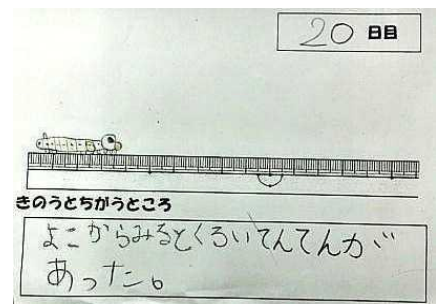 20 日目
きのうとちがうところ
よこからみるとくろいてんてんが
あった。